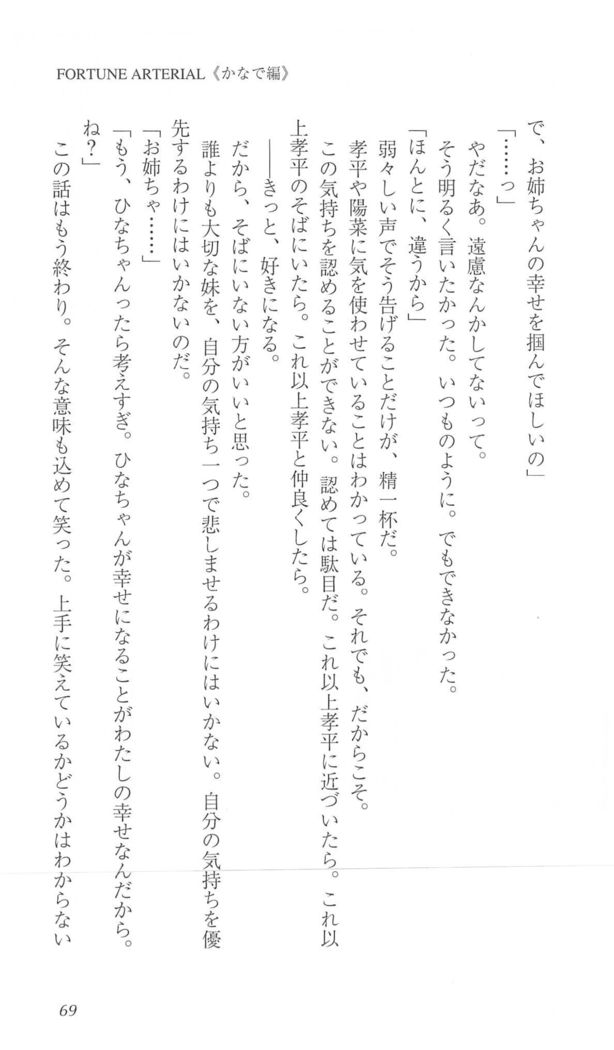 FORTUNE ARTERIAL《かなで編》
で、お姉ちゃんの幸せを掴んでほしいの」
「……っ」
やだなあ。遠慮なんかしてないって。
そう明るく言いたかった。いつものように。でもできなかった。
「ほんとに、違うから」
弱々しい声でそう告げることだけが、精一杯だ。
孝平や陽菜に気を使わせていることはわかっている。それでも、だからこそ。
この気持ちを認めることができない。認めては駄目だ。これ以上孝平に近づいたら。これ以
上孝平のそばにいたら。これ以上孝平と仲良くしたら。
――きっと、好きになる。
だから、そばにいない方がいいと思った。
誰よりも大切な妹を、自分の気持ち一つで悲しませるわけにはいかない。自分の気持ちを優
先するわけにはいかないのだ。
「お姉ちゃ……」
「もう、ひなちゃんったら考えすぎ。ひなちゃんが幸せになることがわたしの幸せなんだから。
ね？」
この話はもう終わり。そんな意味も込めて笑った。上手に笑えているかどうかはわからない
69